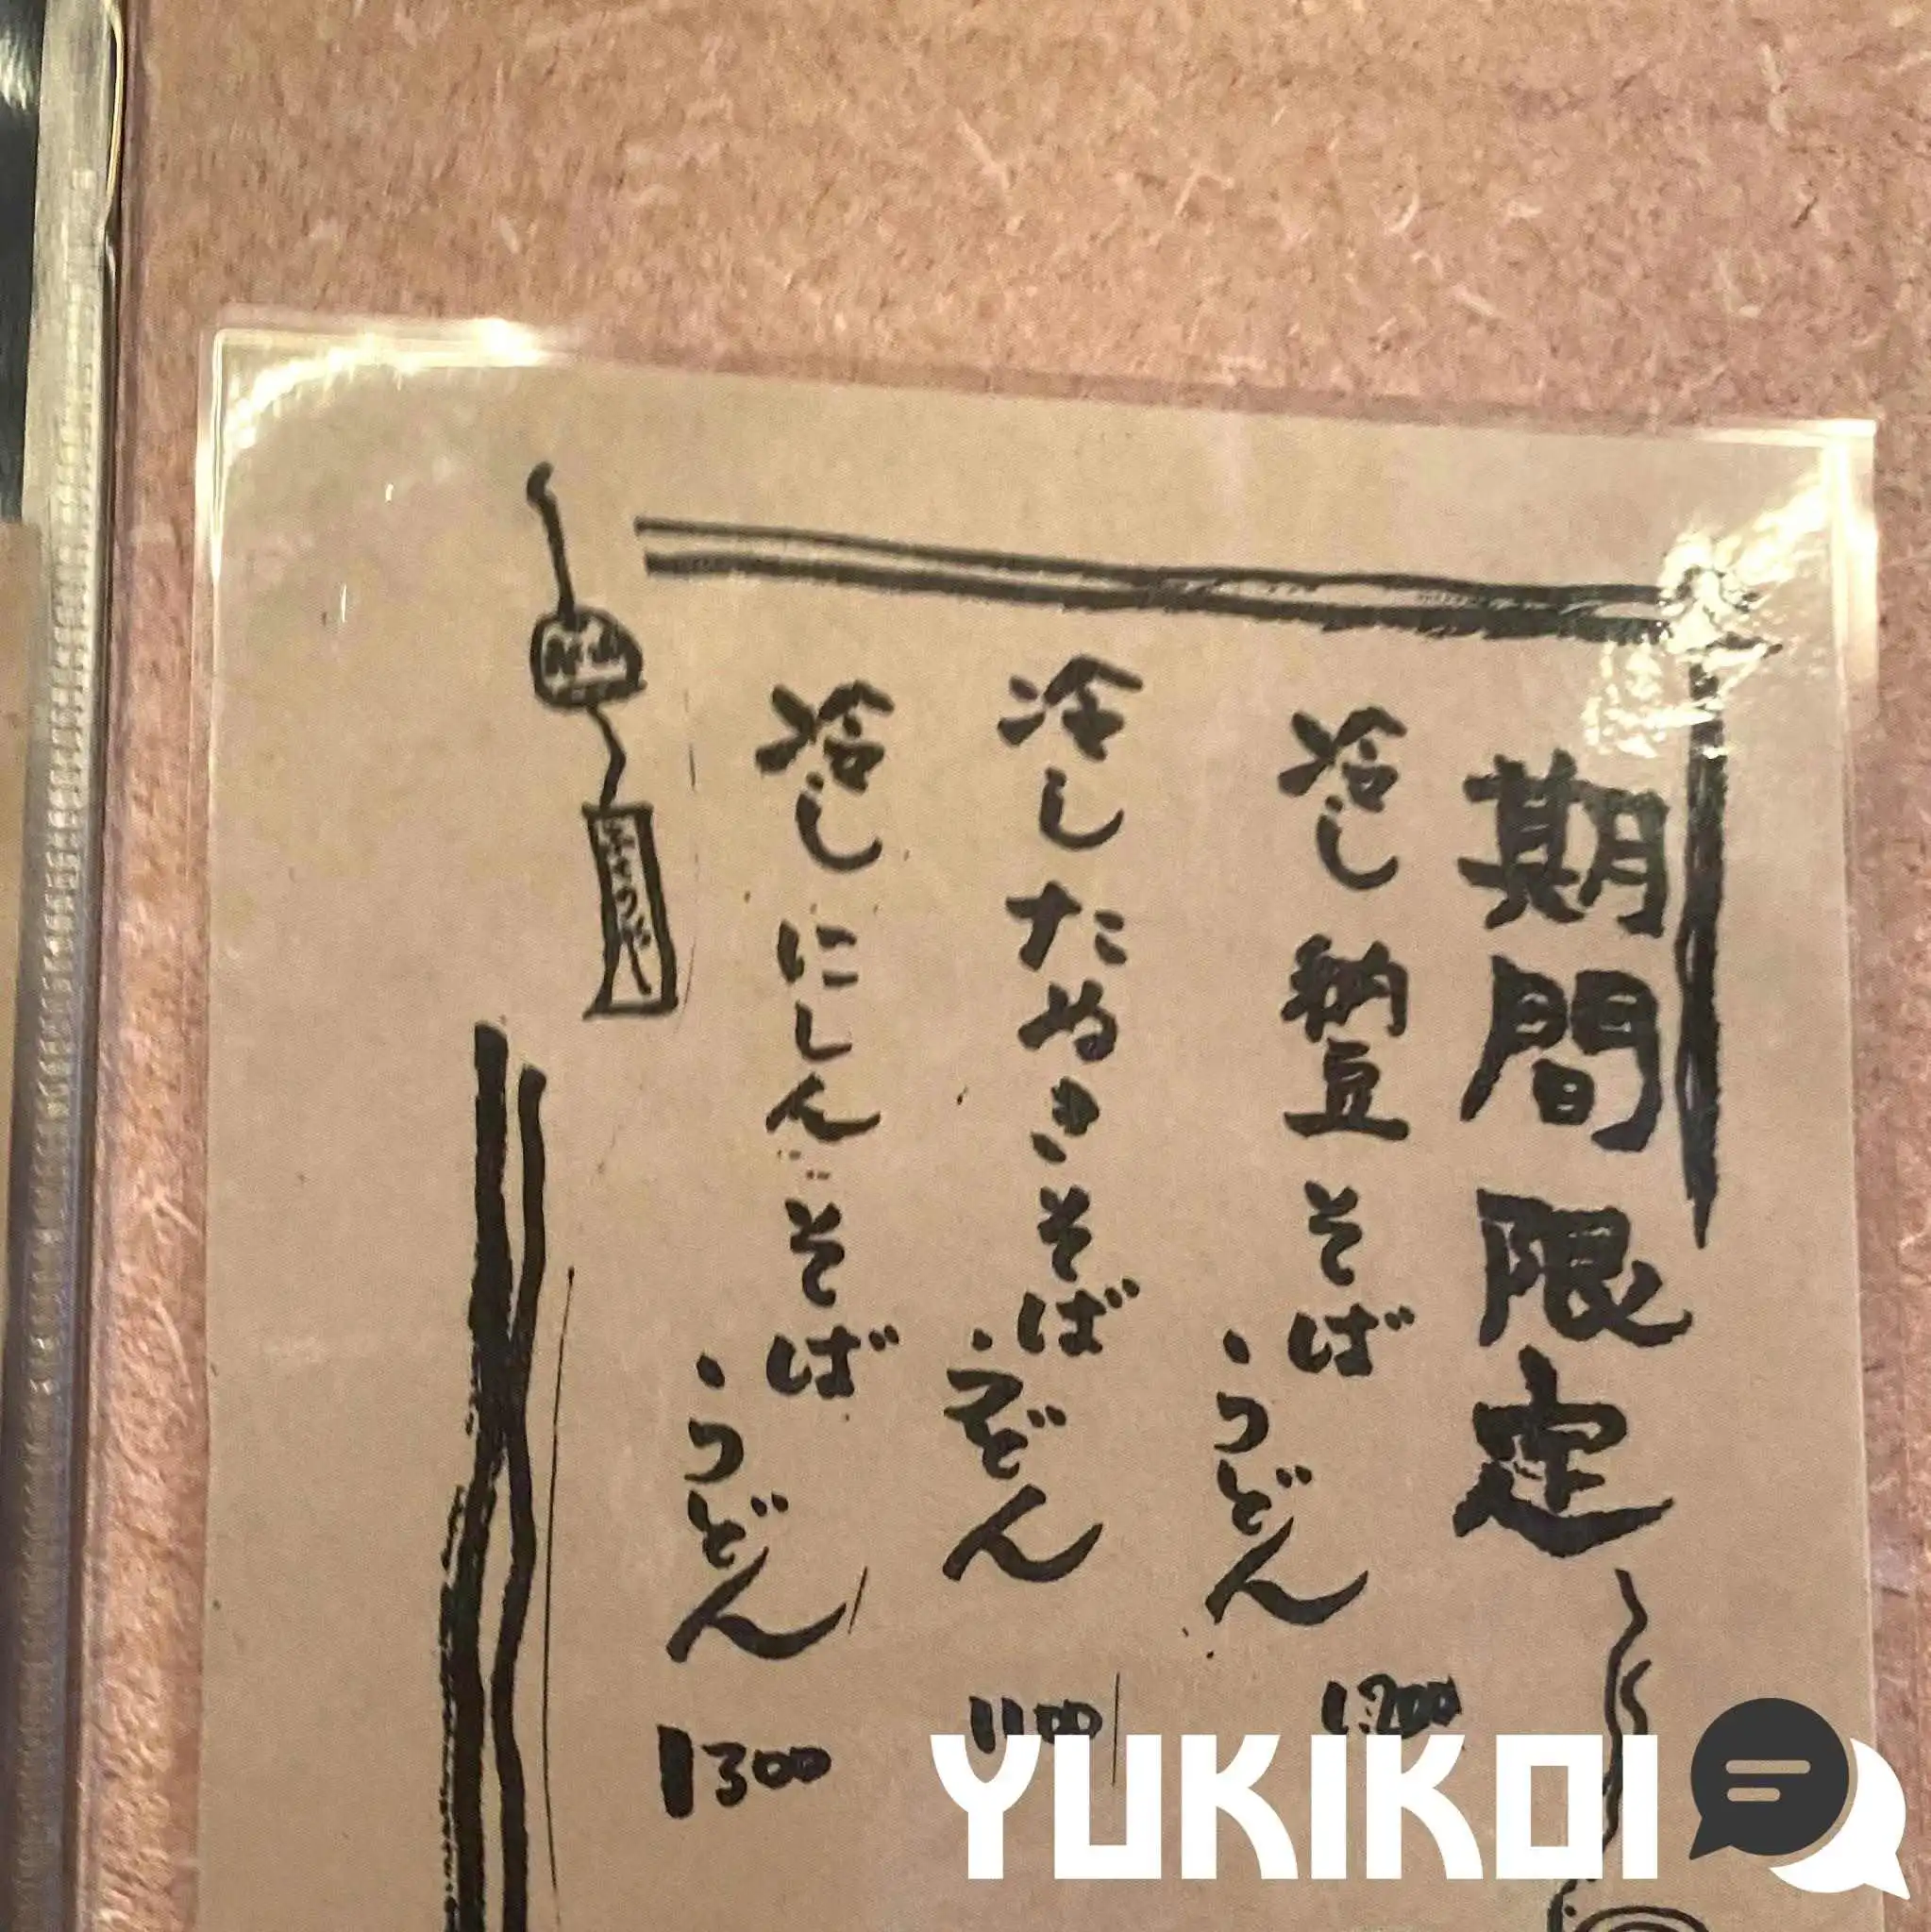 期間限定
冷し納豆そば・うどん
1200
冷したぬきそば・うどん
1100
冷しにしんそば・うどん
1300
YUKIKOI